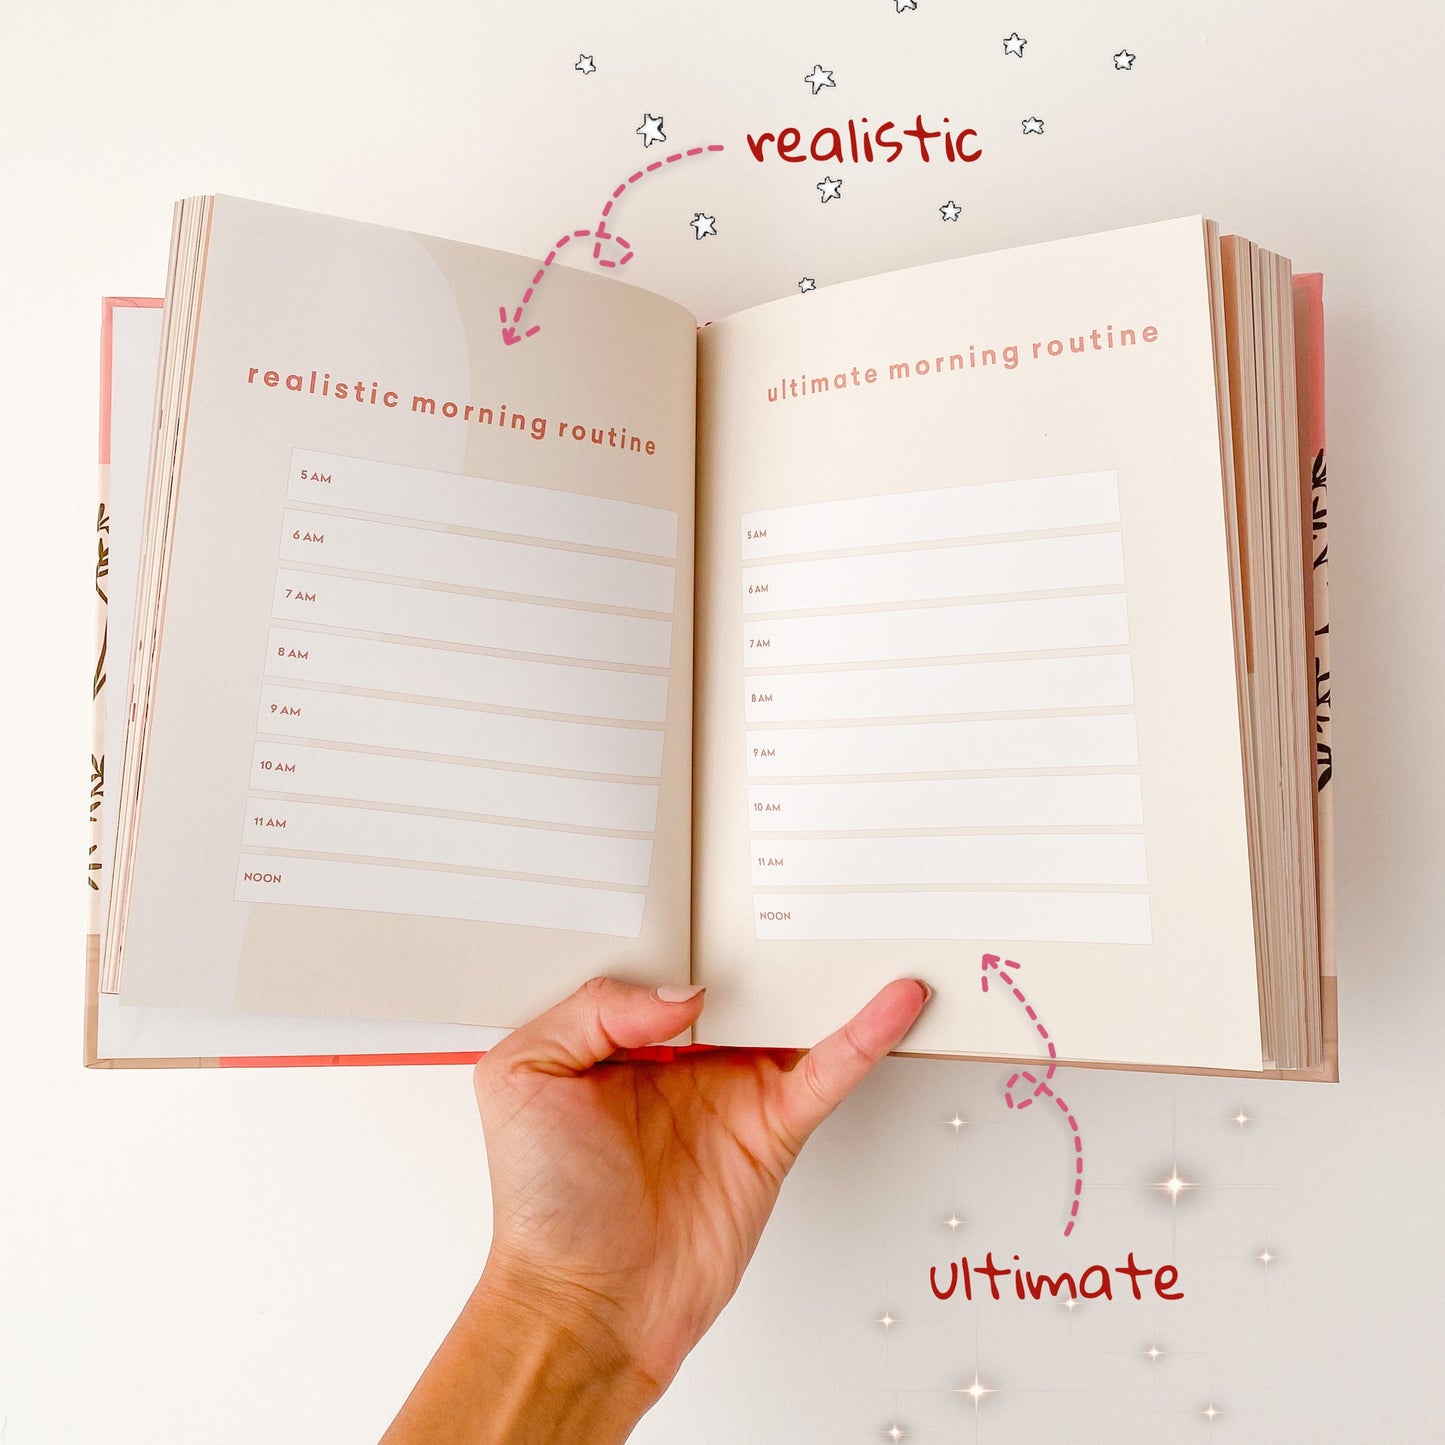 realistic
realistic morning routine
5 AM
6 AM
7 AM
8 AM
9 AM
10 AM
11 AM
NOON
ultimate morning routine
5 AM
6 AM
7 AM
8 AM
9 AM
10 AM
11 AM
NOON
ultimate